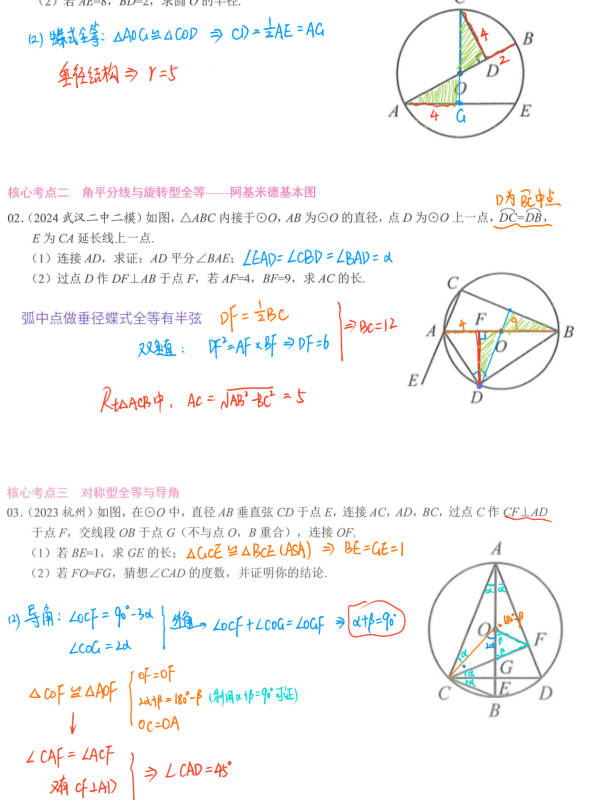 (2) 若 AE=8，BD=2，求圆 O 的半径.
(2) 蝶式全等: △AOG≌△COD ⇒ CD=½AE=AG
垂径结构 ⇒ r=5
C
4
B
D
2
O
A
4
G
E
核心考点二 角平分线与旋转型全等——阿基米德基本图
D为BC中点
02.（2024 武汉二中二模）如图，△ABC 内接于⊙O，AB 为⊙O 的直径，点 D 为⊙O 上一点，DC=DB，
E 为 CA 延长线上一点.
（1）连接 AD，求证：AD 平分∠BAE； ∠EAD=∠CBD=∠BAD=α
（2）过点 D 作 DF⊥AB 于点 F，若 AF=4，BF=9，求 AC 的长.
弧中点做垂径蝶式全等有半弦 DF=½BC
⇒BC=12
双垂直： DF²=AF×BF ⇒DF=6
Rt△ACB中，AC=√AB²-BC² =5
C
F
9
A
4
O
B
E
D
核心考点三 对称型全等与导角
03.（2023 杭州）如图，在⊙O 中，直径 AB 垂直弦 CD 于点 E，连接 AC，AD，BC，过点 C 作 CF⊥AD
于点 F，交线段 OB 于点 G（不与点 O，B 重合），连接 OF.
（1）若 BE=1，求 GE 的长； △GCE≌△BCE(ASA) ⇒ BE=GE=1
（2）若 FO=FG，猜想∠CAD 的度数，并证明你的结论.
(2) 导角: ∠OCF=90°-3α
∠COG=2α
∠OCF+∠COG=∠OGF ⇒ α+β=90°
△COF≌△AOF
OF=OF
2α+β=180°-β (利用α+β=90°可证)
OC=OA
∠CAF=∠ACF
又有CF⊥AD
⇒∠CAD=45°
A
α
α
180°-β
O
2α
β
F
β
G
α
α
2α
C
E
D
B